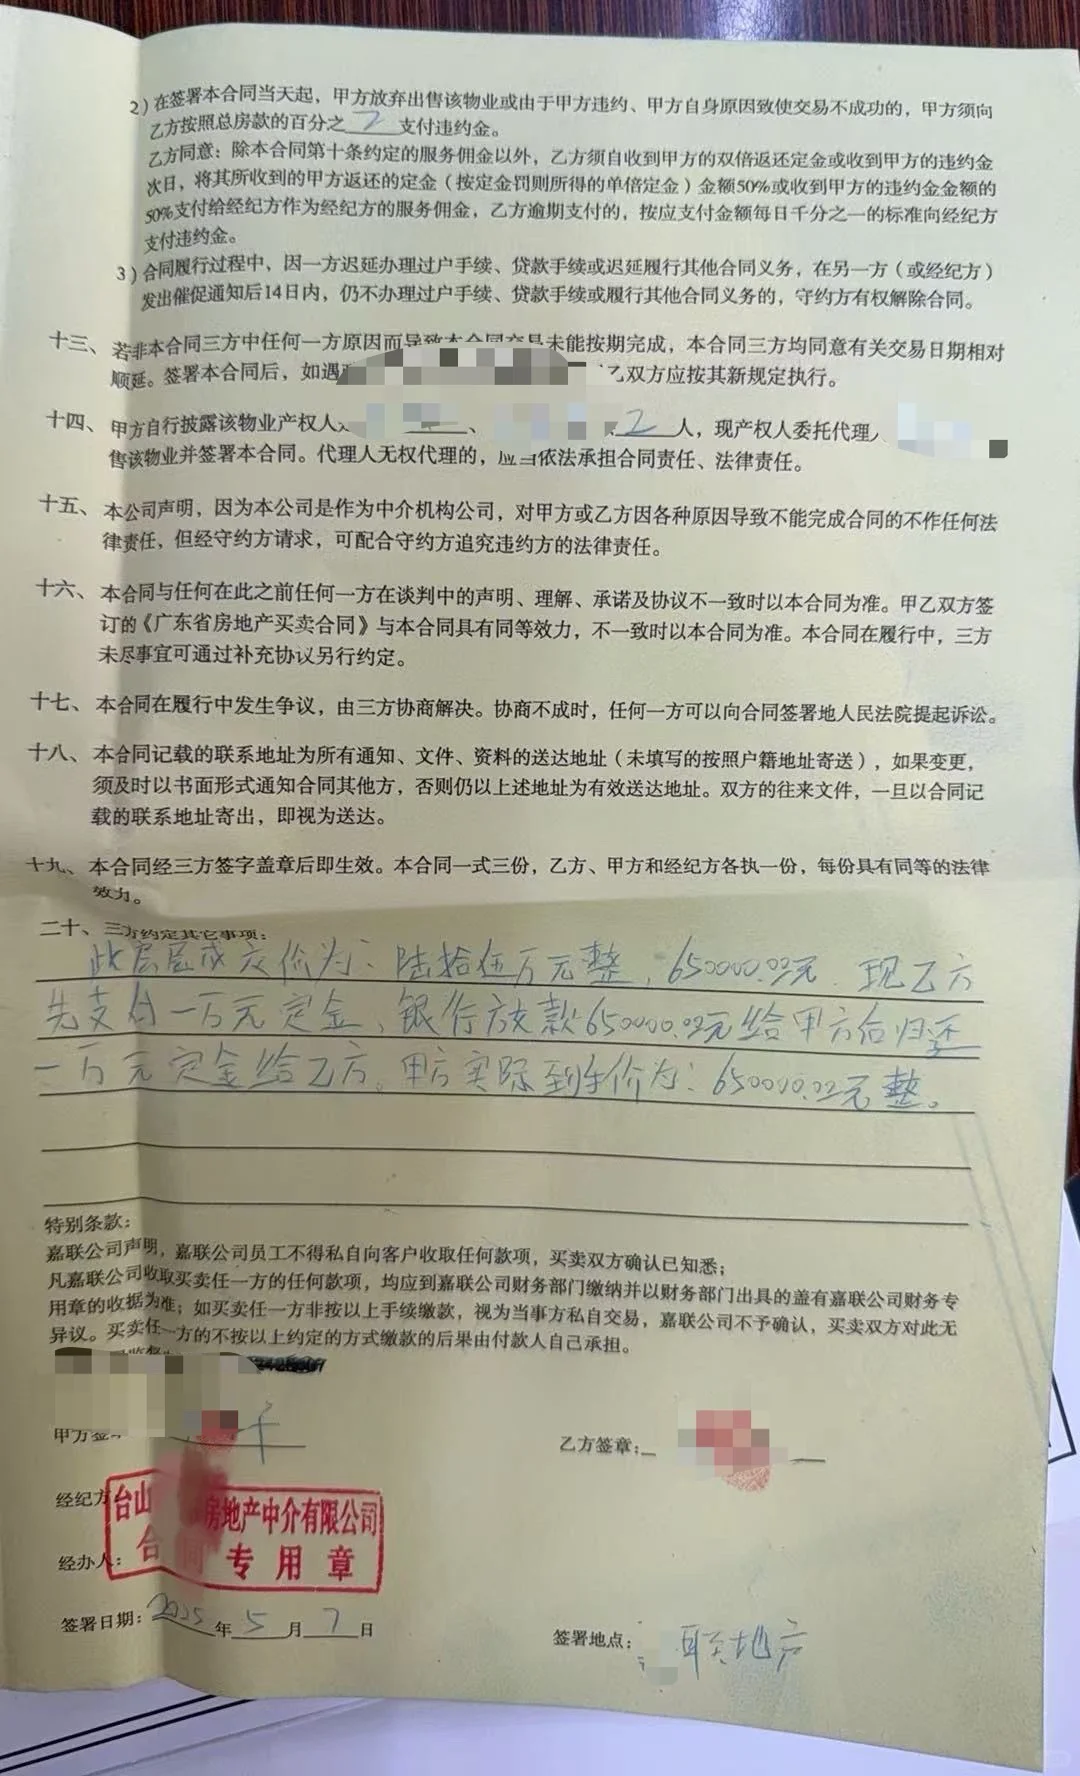 2）在签署本合同当天起，甲方放弃出售该物业或由于甲方违约、甲方自身原因致使交易不成功的，甲方须向
乙方按照总房款的百分之 2 支付违约金。
乙方同意：除本合同第十条约定的服务佣金以外，乙方须自收到甲方的双倍返还定金或收到甲方的违约金
次日，将其所收到的甲方返还的定金（按定金罚则所得的单倍定金）金额50%或收到甲方的违约金金额的
50%支付给经纪方作为经纪方的服务佣金，乙方逾期支付的，按应支付金额每日千分之一的标准向经纪方
支付违约金。
3）合同履行过程中，因一方迟延办理过户手续、贷款手续或迟延履行其他合同义务，在另一方（或经纪方）
发出催促通知后14日内，仍不办理过户手续、贷款手续或履行其他合同义务的，守约方有权解除合同。
十三、若非本合同三方中任何一方原因而导致本合同交易未能按期完成，本合同三方均同意有关交易日期相对
顺延。签署本合同后，如遇 乙双方应按其新规定执行。
十四、甲方自行披露该物业产权人 、 2 人，现产权人委托代理人
售该物业并签署本合同。代理人无权代理的，应当依法承担合同责任、法律责任。
十五、本公司声明，因为本公司是作为中介机构公司，对甲方或乙方因各种原因导致不能完成合同的不作任何法
律责任，但经守约方请求，可配合守约方追究违约方的法律责任。
十六、本合同与任何在此之前任何一方在谈判中的声明、理解、承诺及协议不一致时以本合同为准。甲乙双方签
订的《广东省房地产买卖合同》与本合同具有同等效力，不一致时以本合同为准。本合同在履行中，三方
未尽事宜可通过补充协议另行约定。
十七、本合同在履行中发生争议，由三方协商解决。协商不成时，任何一方可以向合同签署地人民法院提起诉讼。
十八、本合同记载的联系地址为所有通知、文件、资料的送达地址（未填写的按照户籍地址寄送），如果变更，
须及时以书面形式通知合同其他方，否则仍以上述地址为有效送达地址。双方的往来文件，一旦以合同记
载的联系地址寄出，即视为送达。
十九、本合同经三方签字盖章后即生效。本合同一式三份，乙方、甲方和经纪方各执一份，每份具有同等的法律
效力。
二十、三方约定其它事项：
此房屋成交价为：陆拾伍万元整，650000.02元。现乙方
先支付一万元定金，银行放款650000.02元给甲方后归还
一万元定金给乙方。甲方实际到手价为：650000.02元整。
特别条款：
嘉联公司声明，嘉联公司员工不得私自向客户收取任何款项，买卖双方确认已知悉；
凡嘉联公司收取买卖任一方的任何款项，均应到嘉联公司财务部门缴纳并以财务部门出具的盖有嘉联公司财务专
用章的收据为准；如买卖任一方非按以上手续缴款，视为当事方私自交易，嘉联公司不予确认，买卖双方对此无
异议。买卖任一方的不按以上约定的方式缴款的后果由付款人自己承担。
甲方签 乙方签章：
经纪方 台山 房地产中介有限公司
经办人： 合同专用章
签署日期：2025年5月7日 签署地点： 联地产